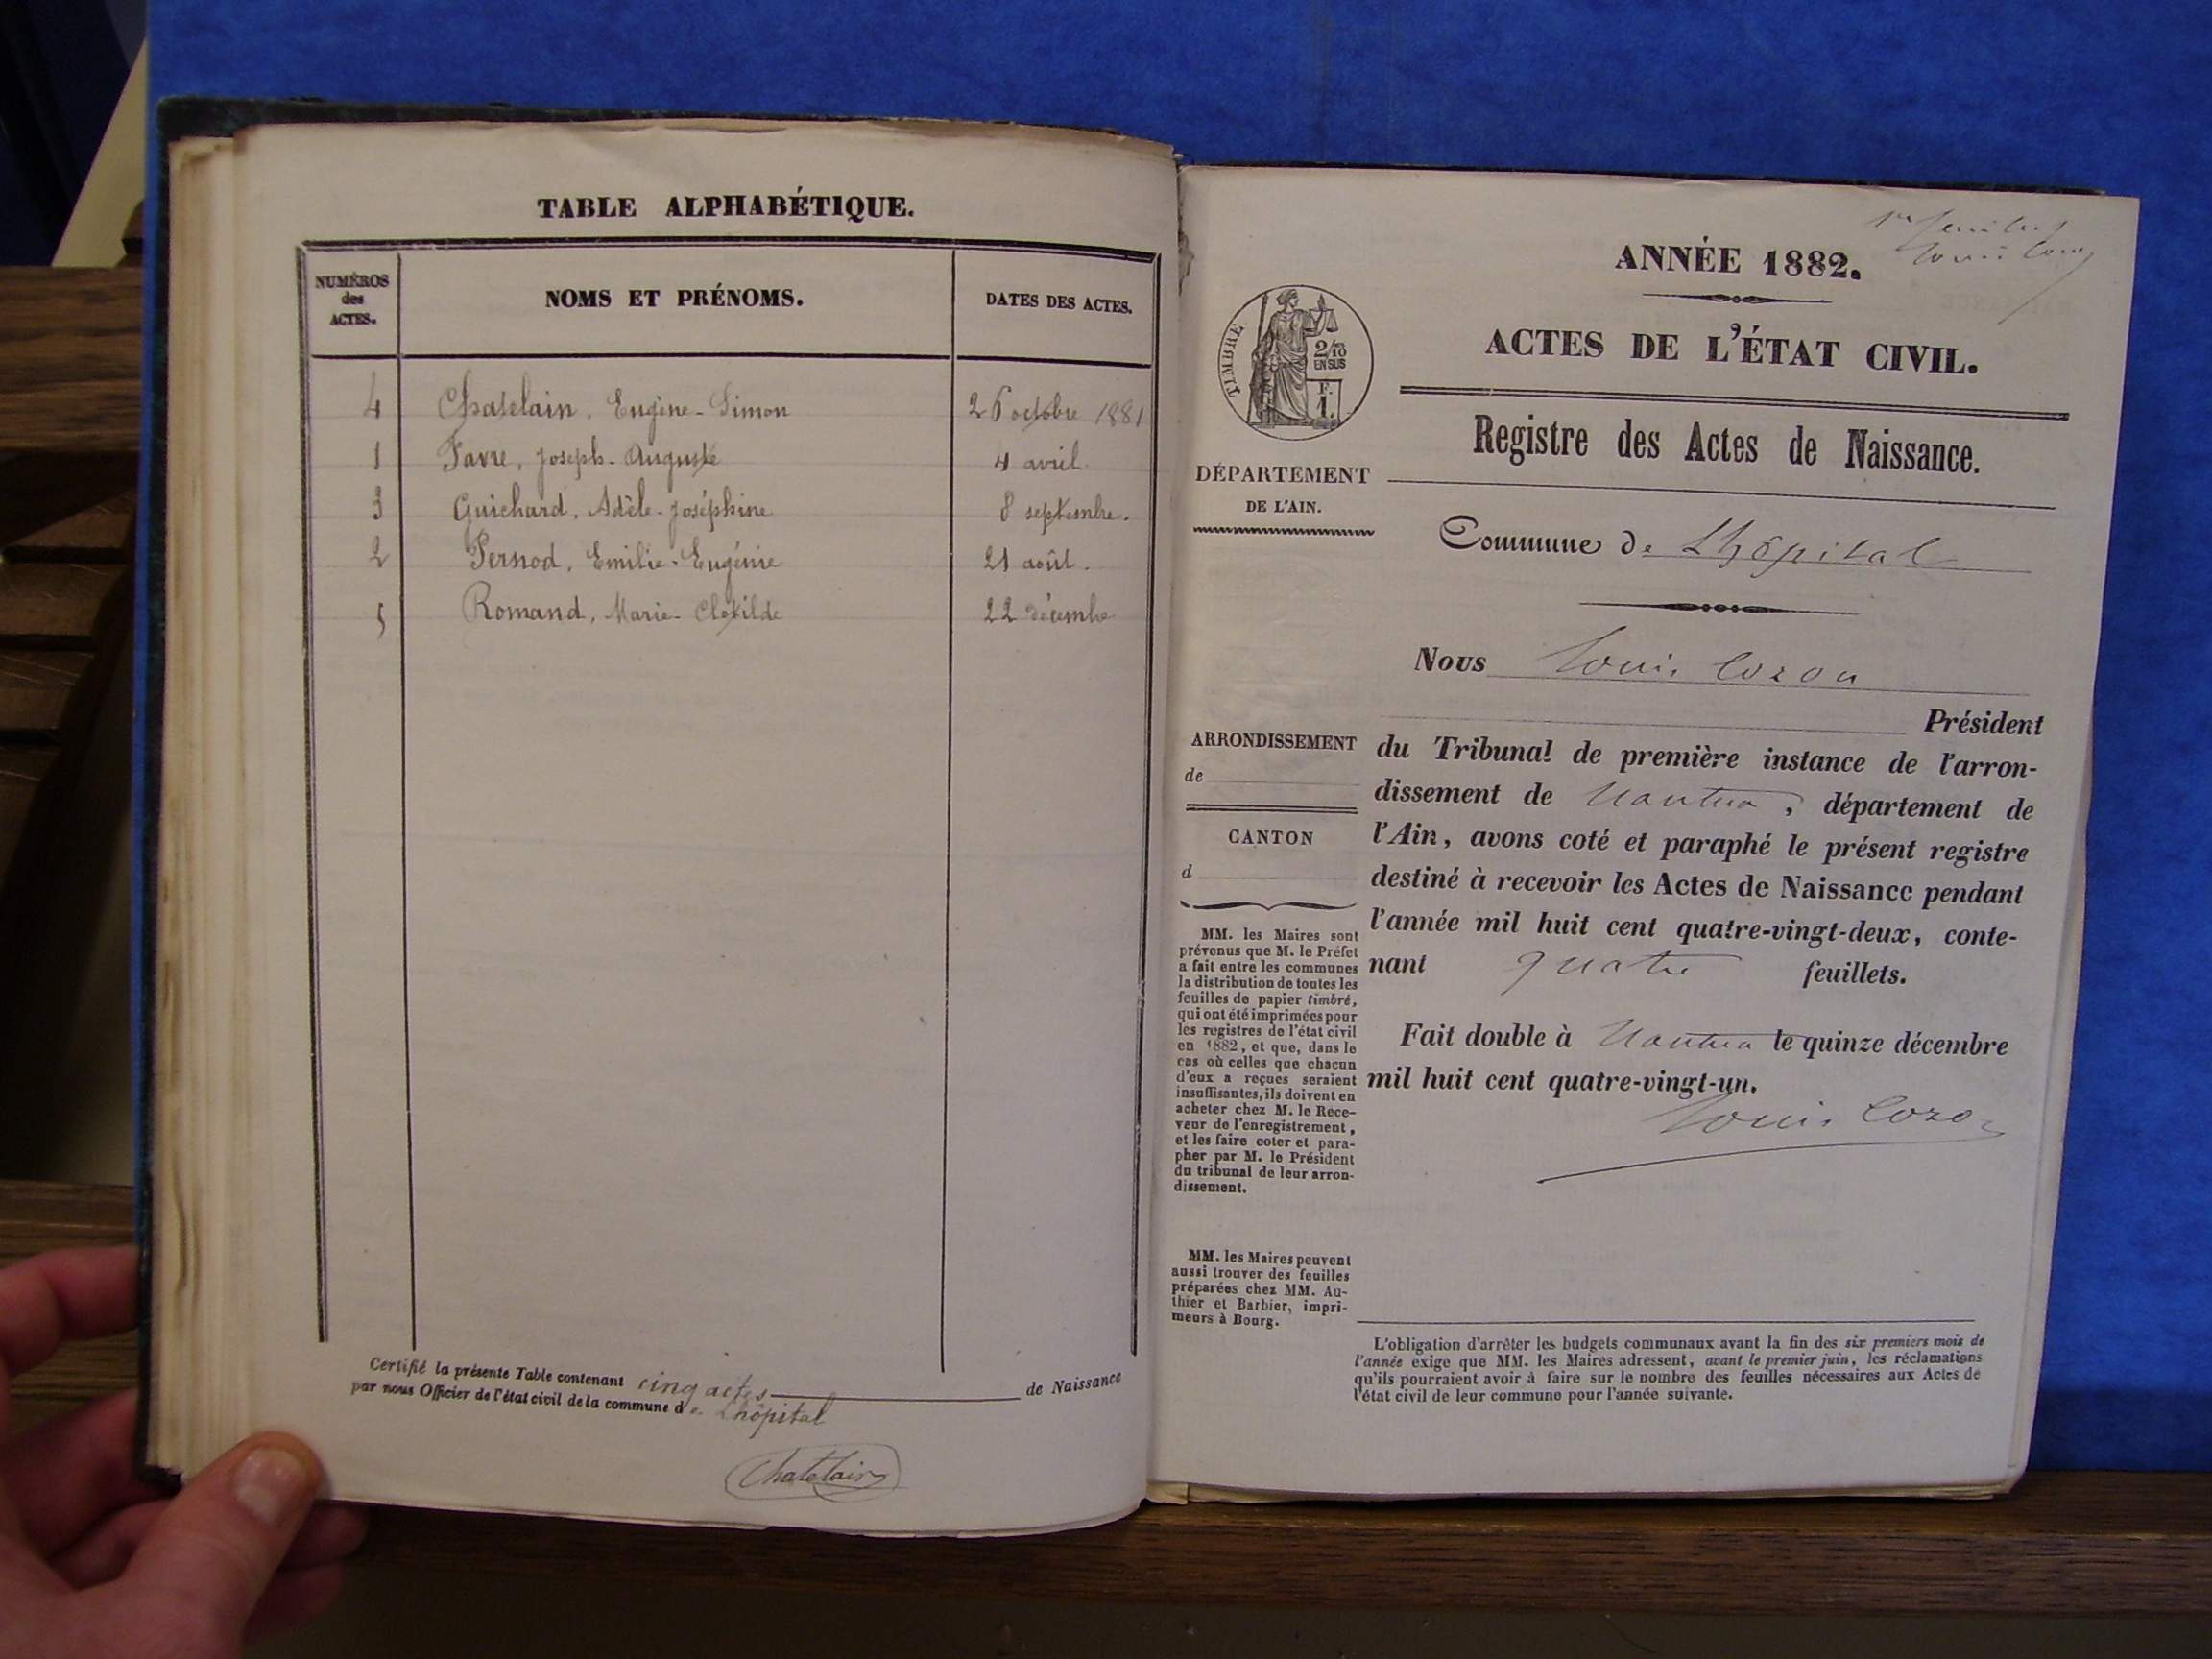 TABLE ALPHABÉTIQUE.
NUMÉROS des ACTES. NOMS ET PRÉNOMS. DATES DES ACTES.
4 Chatelain, Eugène-Simon 26 octobre 1881
1 Favre, Joseph-Auguste 4 avril
3 Guichard, Adèle-Joséphine 8 septembre.
2 Pernod, Emilie-Eugénie 21 août.
5 Romand, Marie-Clotilde 22 décembre
Certifié la présente Table contenant cinq actes de Naissance
par nous Officier de l'état civil de la commune de Lhôpital
Chatelain
1er feuillet
Louis Cozon
ANNÉE 1882.
ACTES DE L'ÉTAT CIVIL.
TIMBRE
2/10
EN SUS
F.
1.
Registre des Actes de Naissance.
DÉPARTEMENT
DE L'AIN.
Commune de Lhôpital
Nous Louis Cozon
Président
du Tribunal de première instance de l'arron-
dissement de Nantua, département de
l'Ain, avons coté et paraphé le présent registre
destiné à recevoir les Actes de Naissance pendant
l'année mil huit cent quatre-vingt-deux, conte-
nant quatre feuillets.
Fait double à Nantua le quinze décembre
mil huit cent quatre-vingt-un.
Louis Cozon
ARRONDISSEMENT
de
CANTON
d
MM. les Maires sont
prévenus que M. le Préfet
a fait entre les communes
la distribution de toutes les
feuilles de papier timbré,
qui ont été imprimées pour
les registres de l'état civil
en 1882, et que, dans le
cas où celles que chacun
d'eux a reçues seraient
insuffisantes, ils doivent en
acheter chez M. le Rece-
veur de l'enregistrement,
et les faire coter et para-
pher par M. le Président
du tribunal de leur arron-
dissement.
MM. les Maires peuvent
aussi trouver des feuilles
préparées chez MM. Au-
thier et Barbier, impri-
meurs à Bourg.
L'obligation d'arrêter les budgets communaux avant la fin des six premiers mois de
l'année exige que MM. les Maires adressent, avant le premier juin, les réclamations
qu'ils pourraient avoir à faire sur le nombre des feuilles nécessaires aux Actes de
l'état civil de leur commune pour l'année suivante.